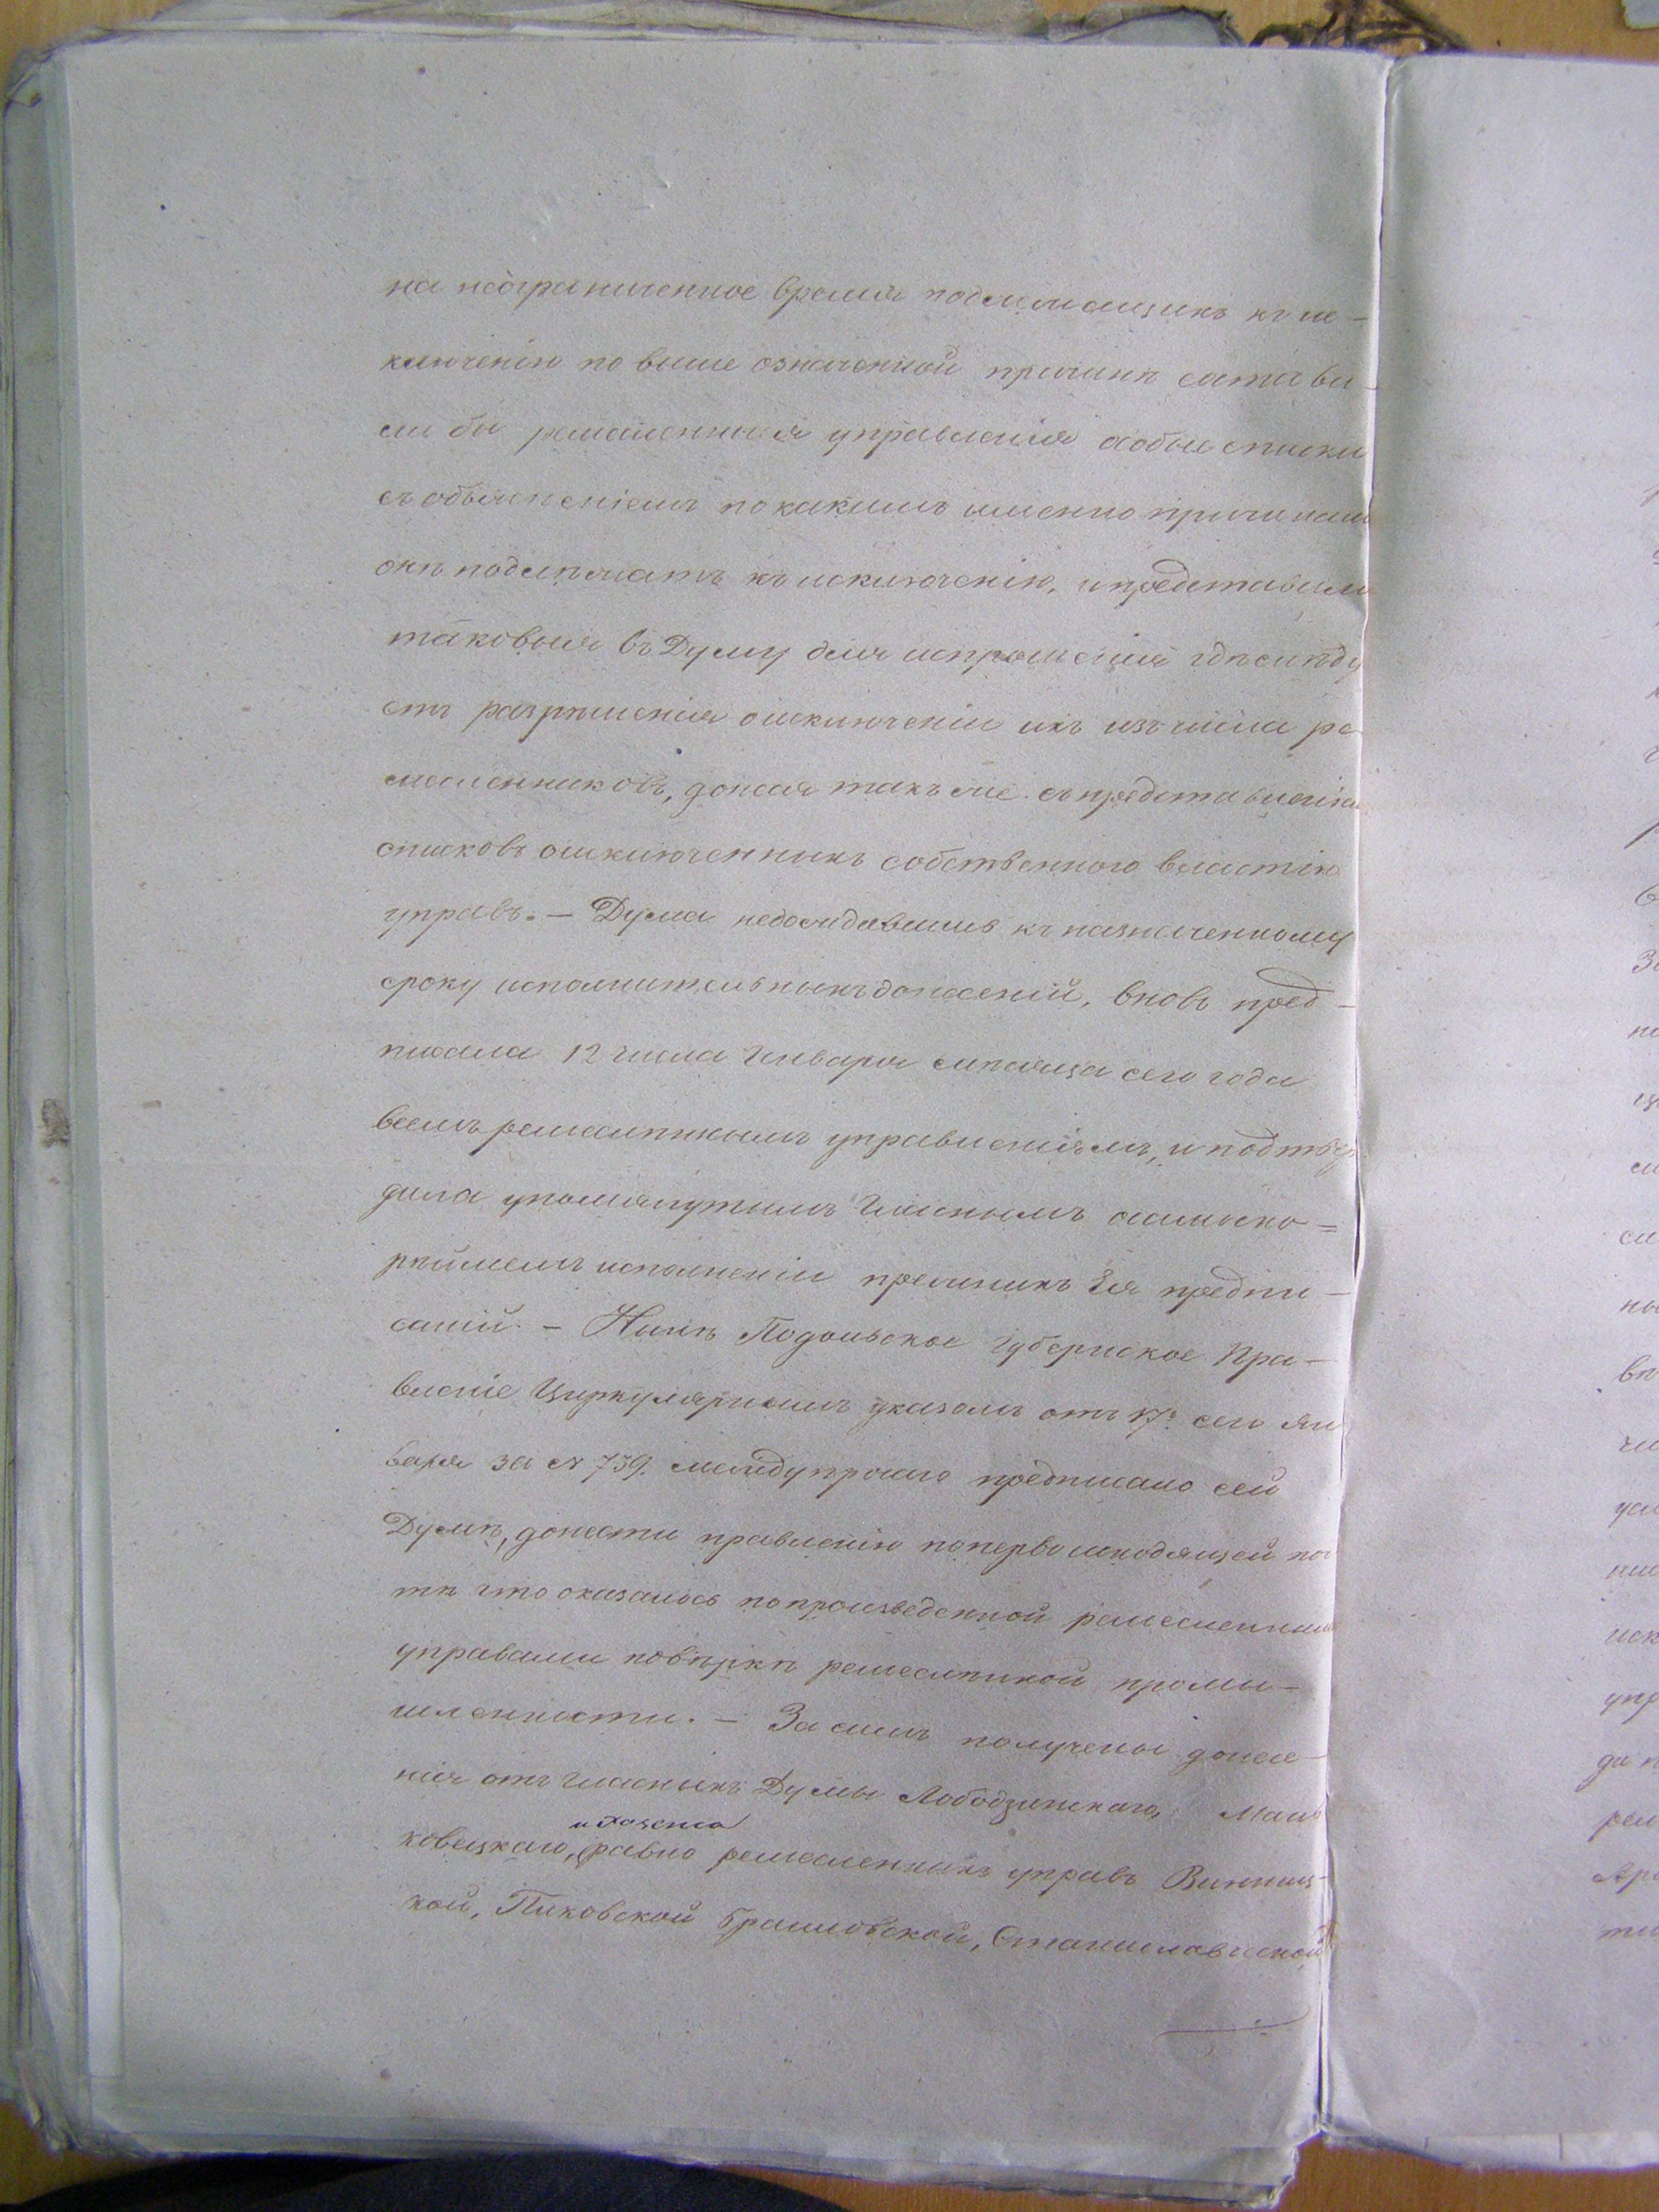 на неограниченное время подлежащихъ къ ис-
ключенію по выше означенной причинѣ состави-
ли бы ремесленныя управленія особые списки
съ объясненіемъ по какимъ именно причинам
онѣ подлѣжатъ къ исключенію, и представили
таковыя въ Думу для испрошенія гдѣ слѣду
етъ разрѣшенія о исключеніи ихъ изъ числа ре
месленниковъ, донеся такъ же съ представленіем
списковъ о исключенныхъ собственного властію
управъ. — Дума недождавшись къ назначенному
сроку исполнительныхъ донесеній, вновь пред-
писала 12 числа Января мѣсяца сего года
всемъ ремеслѣннымъ управленіямъ, и подтвер
дила упомянутымъ Гласнымъ о самоско=
рѣйшемъ исполненіи прежнихъ Ея предпи-
саній. — Нынѣ Подольское Губернское Пра-
вленіе Циркулярнымъ указомъ отъ 17º сего Ян
варя за № 739. между прочаго предписано сей
Думѣ, донести правленію по первоисходящей поч
тѣ что оказалось по произведенной ремесленными
управами повѣркѣ ремеслѣнной промы-
шленности. — За симъ получены донесе-
нія отъ гласныхъ Думы Лободзинскаго, Мань
и Розена
ковецкаго, равно ремесленныхъ управъ Винниц-
кой, Пиковской Браиловской, Станиславчской